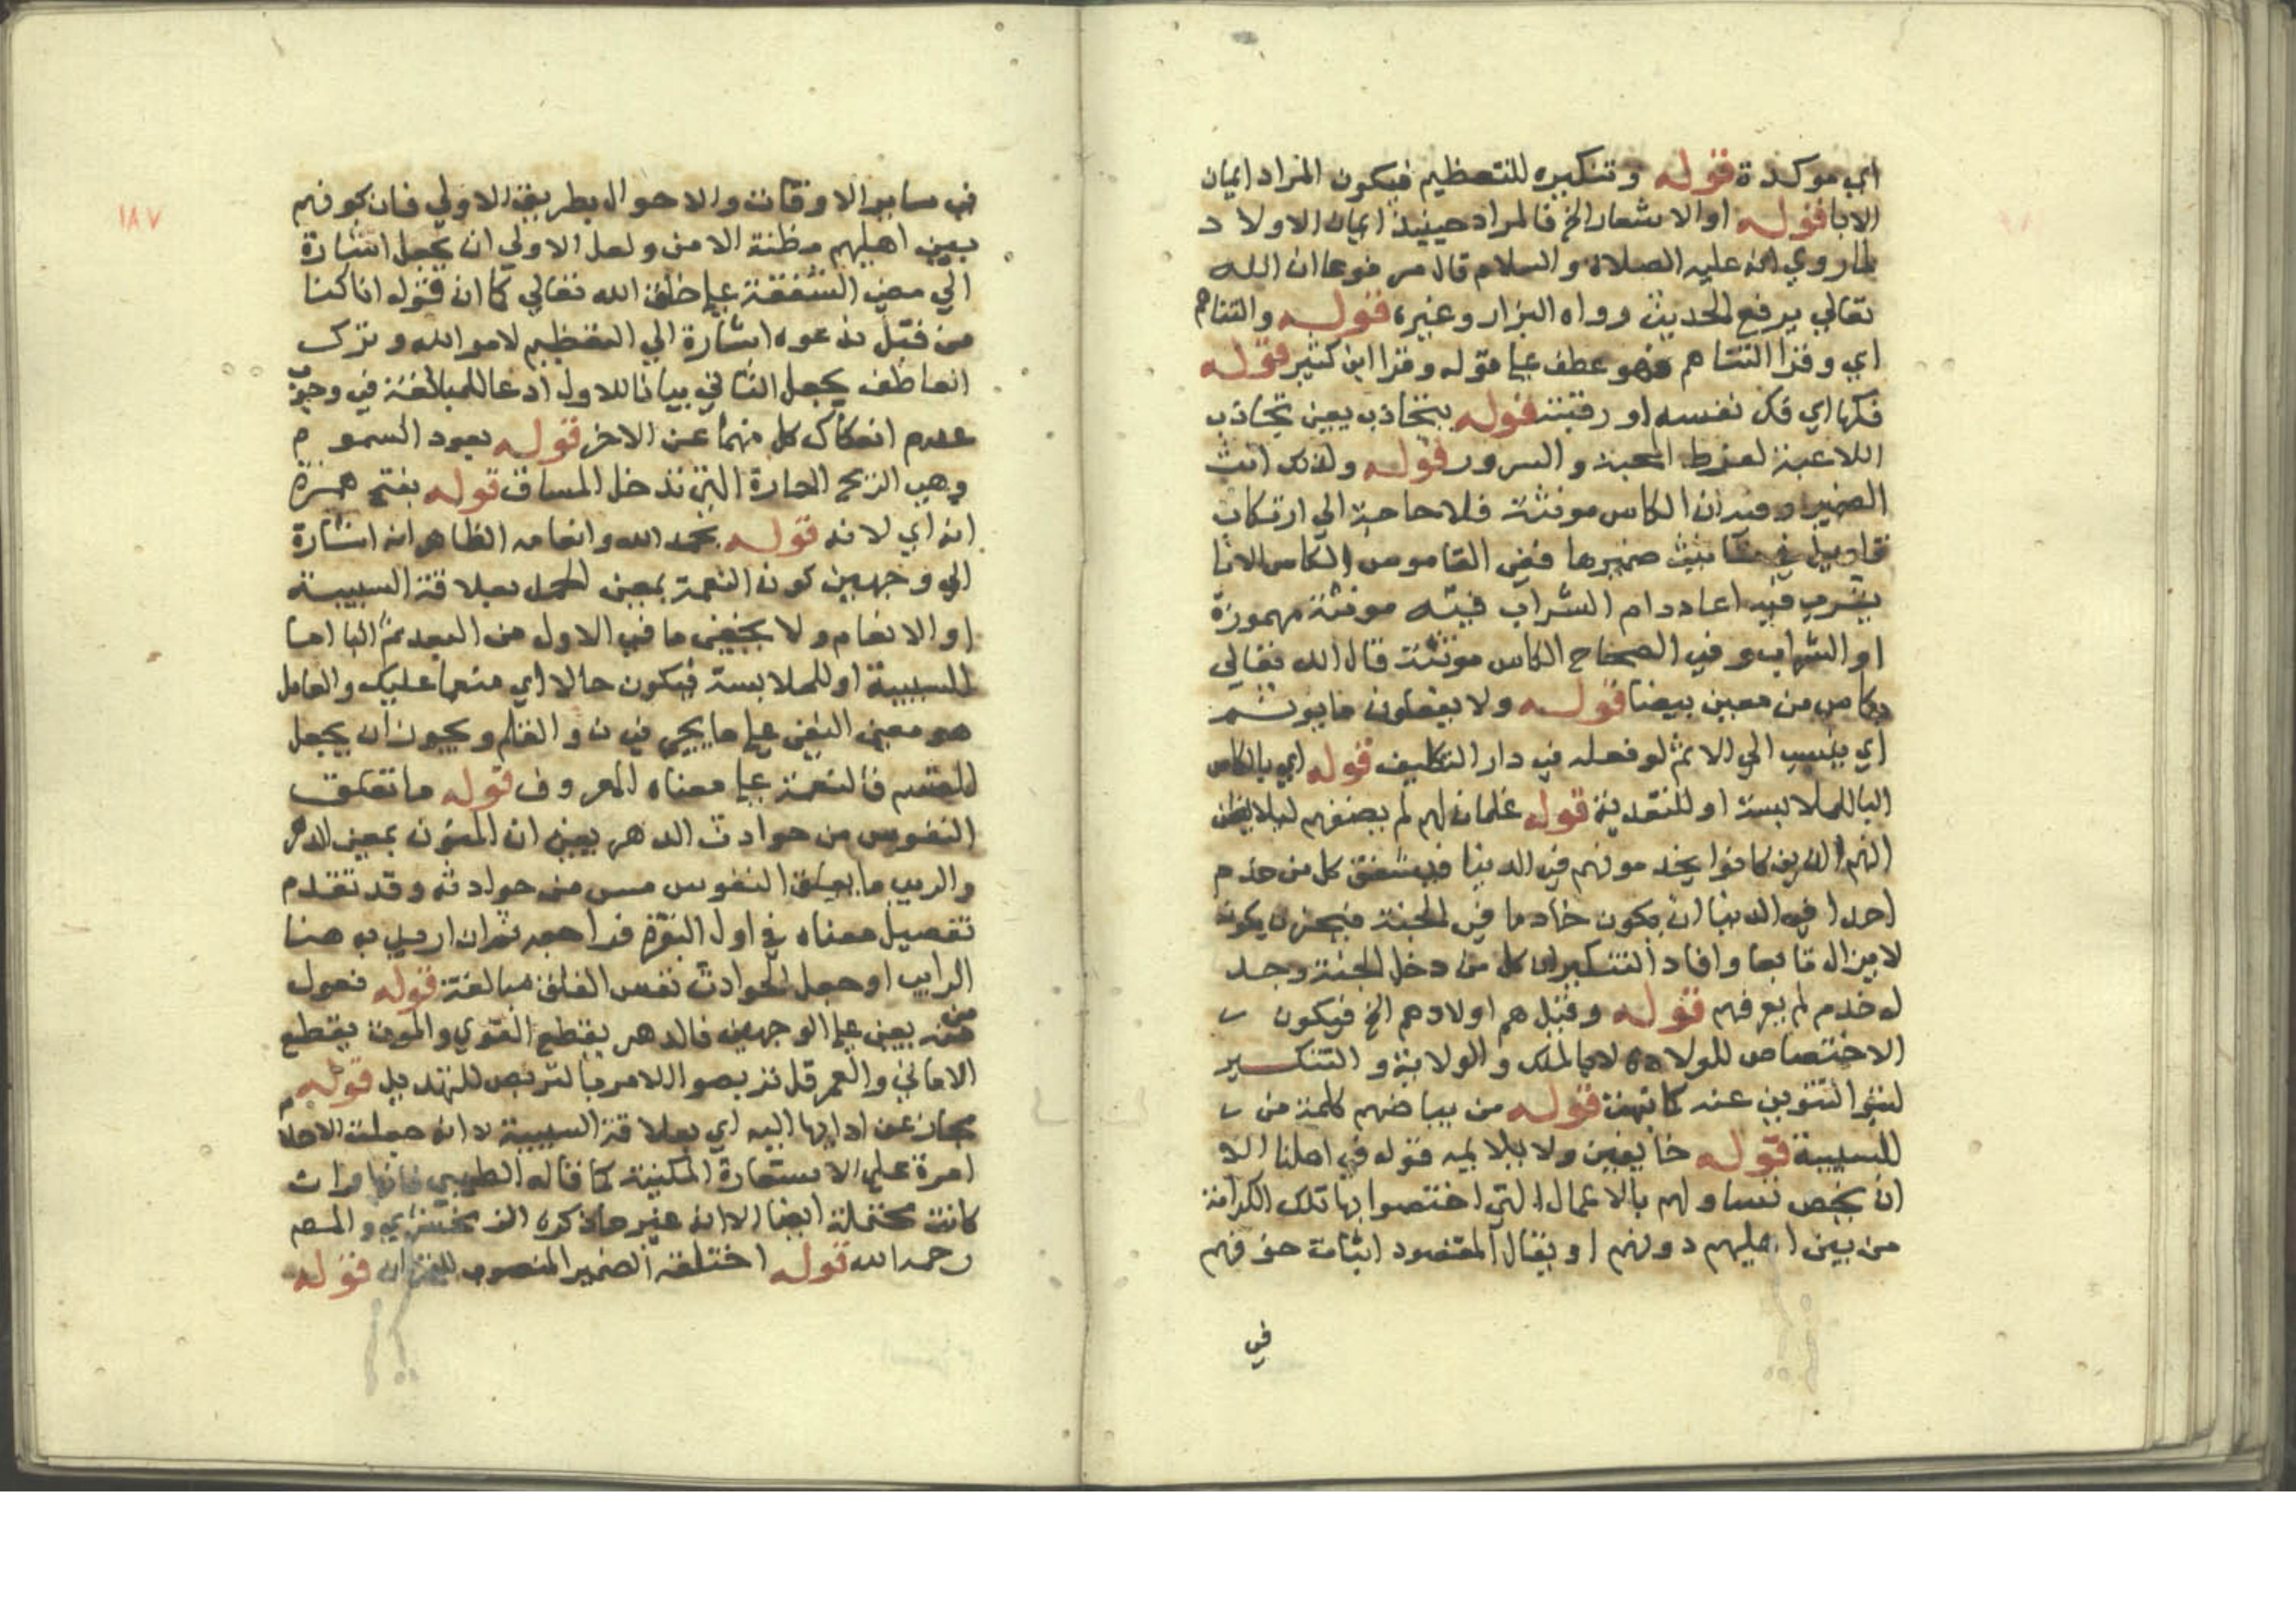 اي موكدة قوله وتنكيره للتعظيم فيكون المراد ايمان
الابا قوله اوالاشعار الخ فالمراد حينيذ ايمان الاولاد
لماروي انه عليه الصلاة والسلام قال مرفوعا ان الله
تعالي يرفع الحديث ورواه البزار وغيره قوله والتناهم
اي وقرا التناهم فهو عطف علي قوله وقرا ابن كثير قوله
فكها اي فك نفسه او رقبته قوله بتجاذب يعين تجاذب
اللاعبة لفرط المحبة والسرور قوله ولذلك انث
الضمير وفيه ان الكاس مونثة فلا حاجة الي ارتكاب
تاويل في تانيث ضميرها ففي القاموس الكاس الانا
يشرب فيه اعاددام الشراب فيه مونثة مهموزة
او الشراب وفي الصحاح الكاس مونثة قال الله تعالي
بكاس من معين بيضا قوله ولا يفعلون ما يوثم
اي ينسب الي الاثم لو فعله في دار التكليف قوله اي بالكاس
البا للملابسة او للتعدية قوله غلمان لهم لم يضفهم ليلا يظن
انهم الذين كانوا يخدمونهم في الدنيا فيشفق كل من خدم
احدا في الدنيا ان يكون خادما في الجنة فيحزن بكونه
لا يزال تابعا وافاد التنكير ان كل من دخل الجنة وجد
له خدم لم يعرفهم قوله وقيل هم اولادهم الخ فيكون
الاختصاص للولادة لا بالملك والولاية و التنكير
لبنوا التنوين عنه كانهن قوله من بياضهم كلمة من
للسببية قوله خايفين ولا يلايمه قوله في اهلنا الا
ان يخص نساولهم بالاعمال التي اختصوا بها تلك الكرامة
من بين اهليهم دونهم او يقال المقصود اثبات خوفهم
في
١٨٧
في ساير الاوقات والاحوال بطريق الاولي فان كونهم
بين اهليهم مظنة الامن ولعل الاولي ان يجعل اشارة
الي معني الشفقة علي خلق الله تعالي كما ان قوله انا كنا
من قبل ندعوه اشارة الي التعظيم لامر الله وترك
العاطف يجعل الثاني بيانا للاول ادعا للمبالغة في وجوب
عدم انفكاك كل منهما عن الاخر قوله بعود السموم
وهي الريح الحارة التي تدخل المسام قوله بفتح همزة
انه اي لانه قوله بحمد الله وانعامه الظاهر انه اشارة
الي وجهين كون النعمة بمعين الحمد بعلاقة السببية
او الانعام ولا يخفي ما في الاول من البعد ثم البا اما
للسببية او للملابسة فيكون حالا اي منعما عليك والعامل
هو معني النفي علي ما يجي في ن والقلم ويجوز ان يجعل
للقسم فالنعمة علي معناه المعروف قوله ما تقلق
النفوس من حوادث الدهر يعين ان المنون بمعين الدهر
والريب ما يقلق النفوس من حوادثه وقد تقدم
تفصيل معناه في اول البقرة فراجعه ثم ان اريد به هنا
الرايب او جعل الحوادث نفس القلق مبالغة قوله فعول
منه يعين علي الوجهين فالدهر يقطع القوي والموت يقطع
الاماني والعمر قل تربصوا الامر بالتربص للتهديد قوله
مجاز عن ادايها اليه اي بعلاقة السببية لا انه جعلت الاحلام
امرة علي الاستعارة المكنية كما قاله الطيبي فانها وان
كانت محتملة ايضا الا انه غير ما ذكره الزمخشري والمص
رحمه الله قوله اختلقه الضمير المنصوب للقران قوله